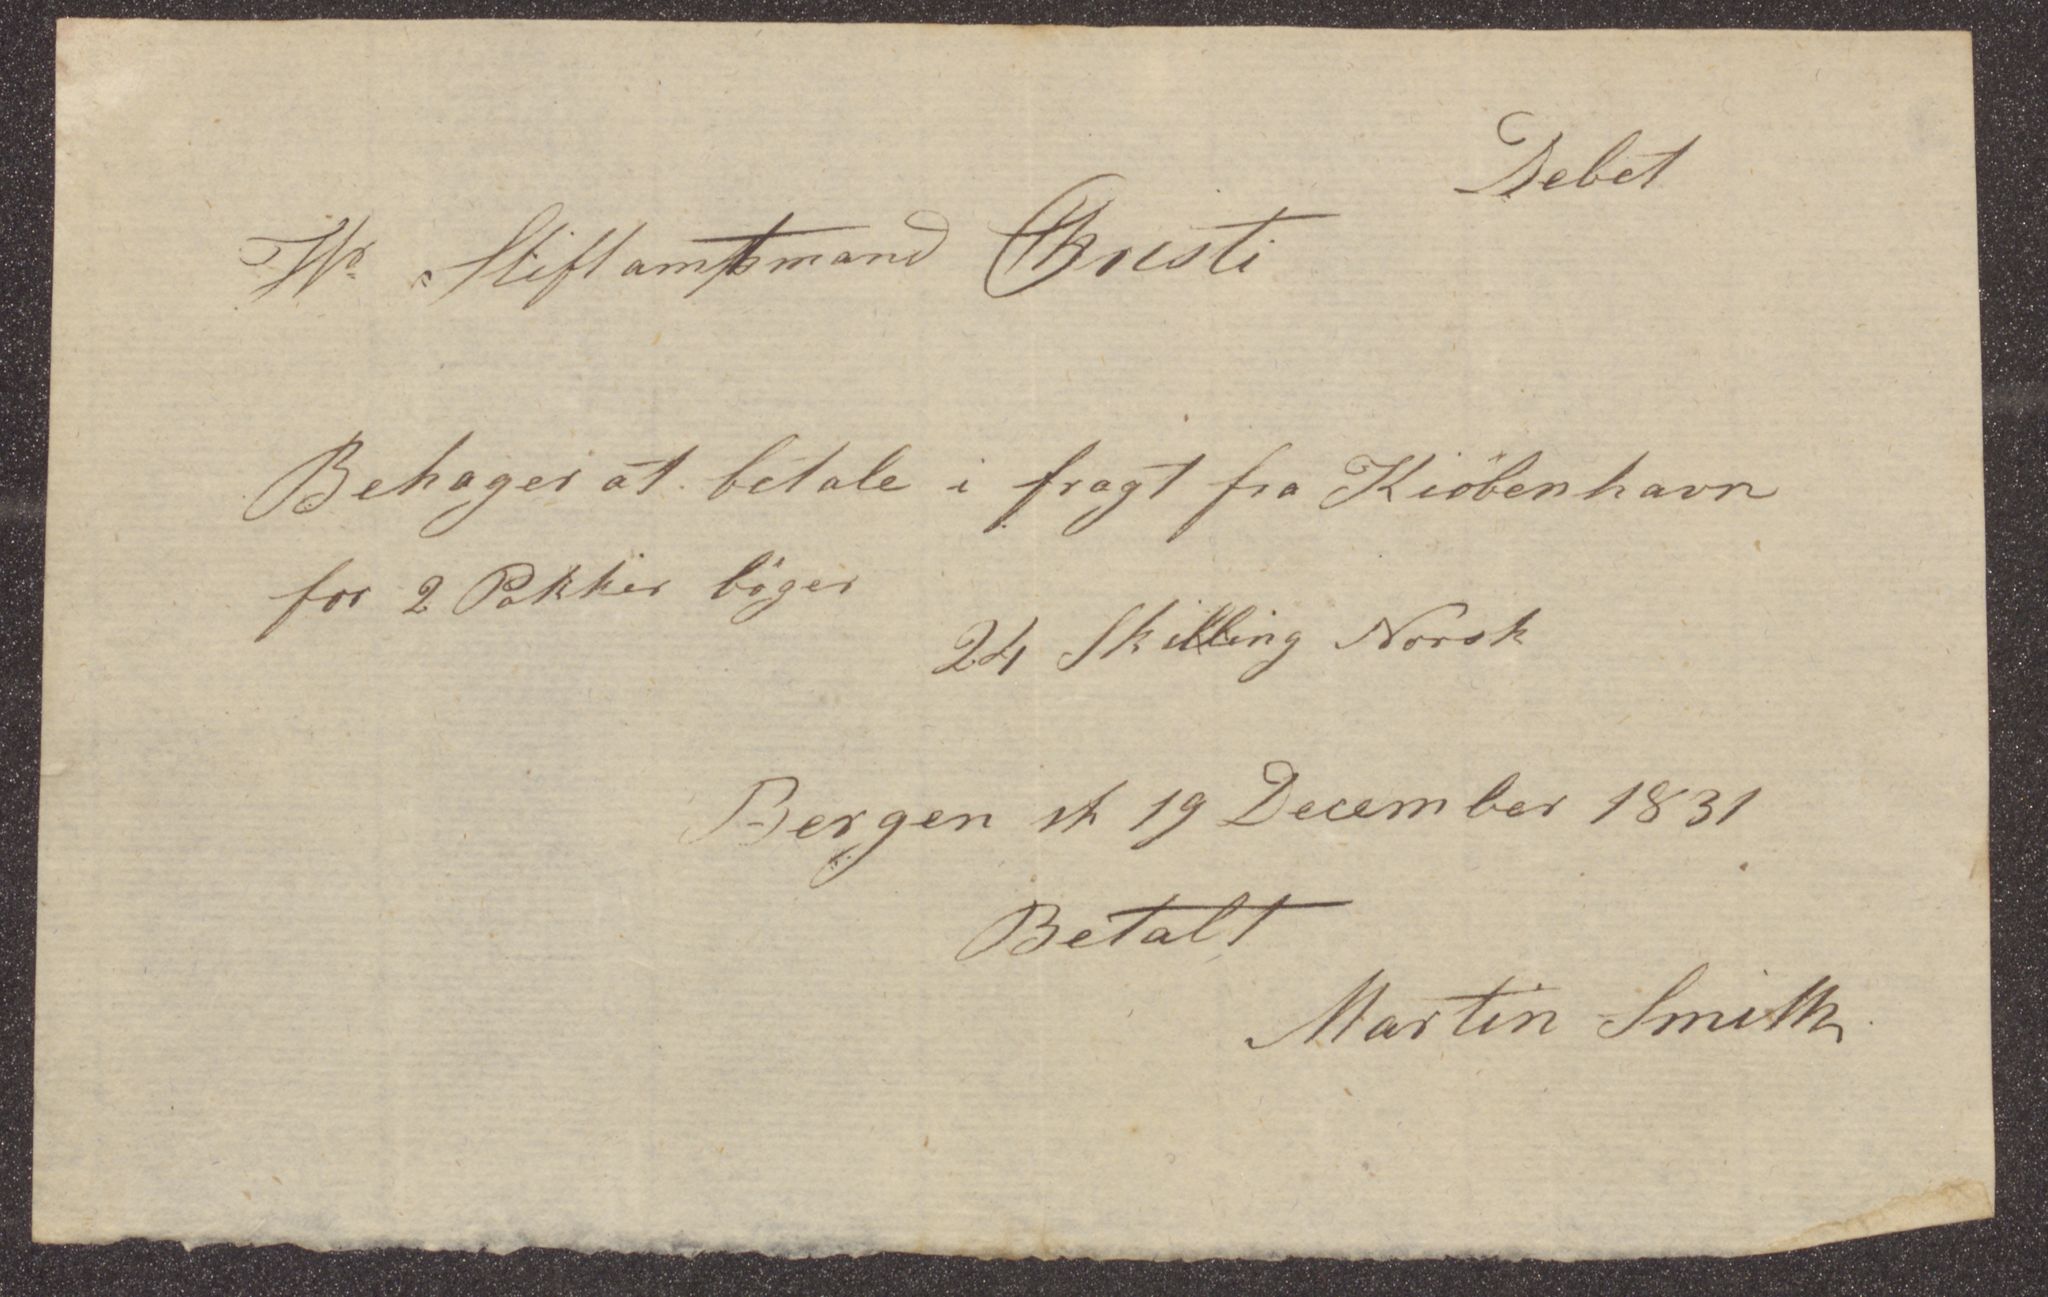 Debet
Hr Stiftamtsmand Christi
Behager at betale i fragt fra Kiöbenhavn
for 2 Pakker böger
24 Skilling Norsk
Bergen 19 December 1831
Betalt
Martin Smith